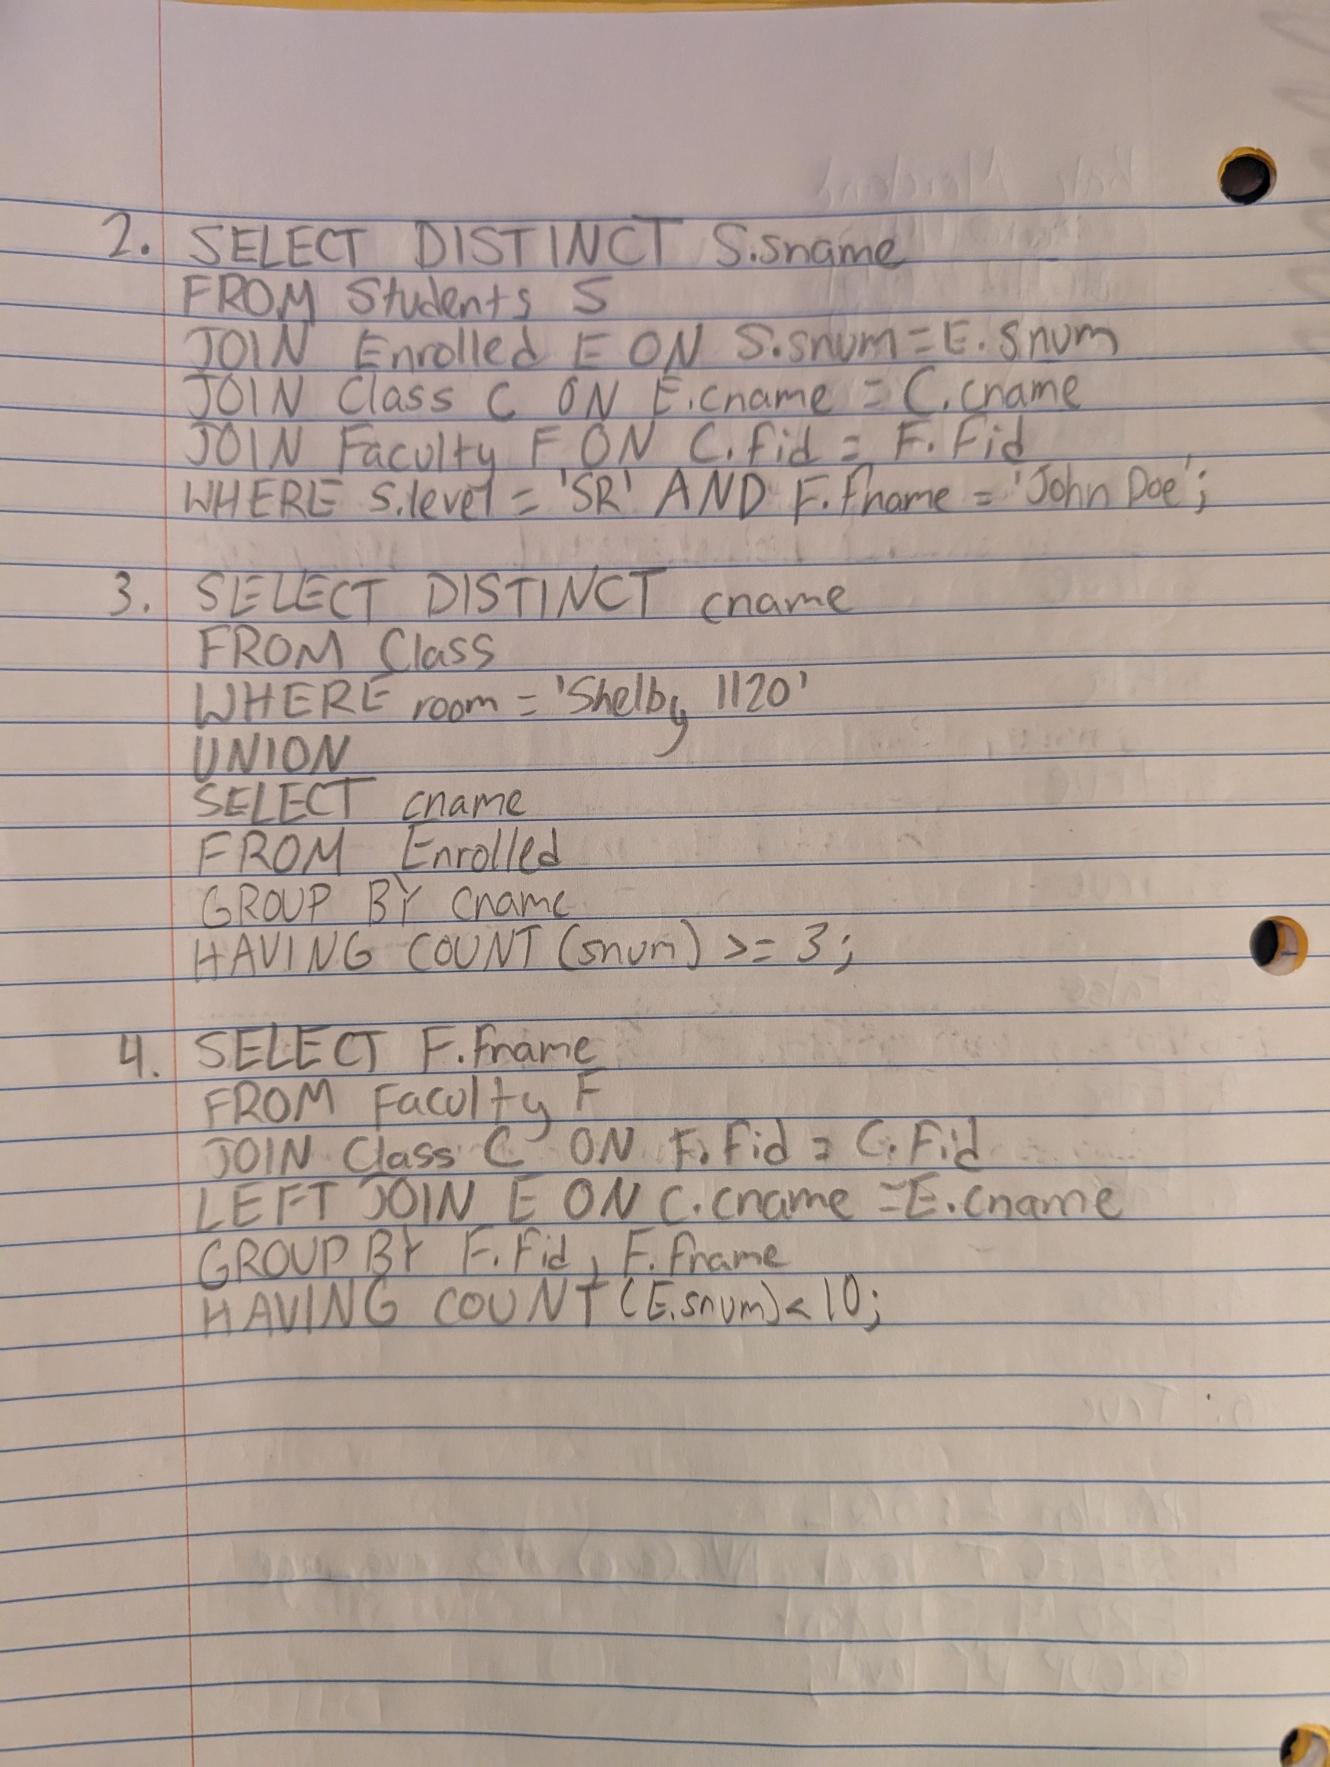 2. SELECT DISTINCT S.sname
FROM Students S
JOIN Enrolled E ON S.snum = E.snum
JOIN Class C ON E.cname = C.cname
JOIN Faculty F ON C.fid = F.fid
WHERE S.level = 'SR' AND F.fname = 'John Doe';
3. SELECT DISTINCT cname
FROM Class
WHERE room = 'Shelby 1120'
UNION
SELECT cname
FROM Enrolled
GROUP BY cname
HAVING COUNT (snum) >= 3;
4. SELECT F.fname
FROM Faculty F
JOIN Class C ON F.fid = C.fid
LEFT JOIN E ON C.cname = E.cname
GROUP BY F.fid, F.fname
HAVING COUNT (E.snum) < 10;